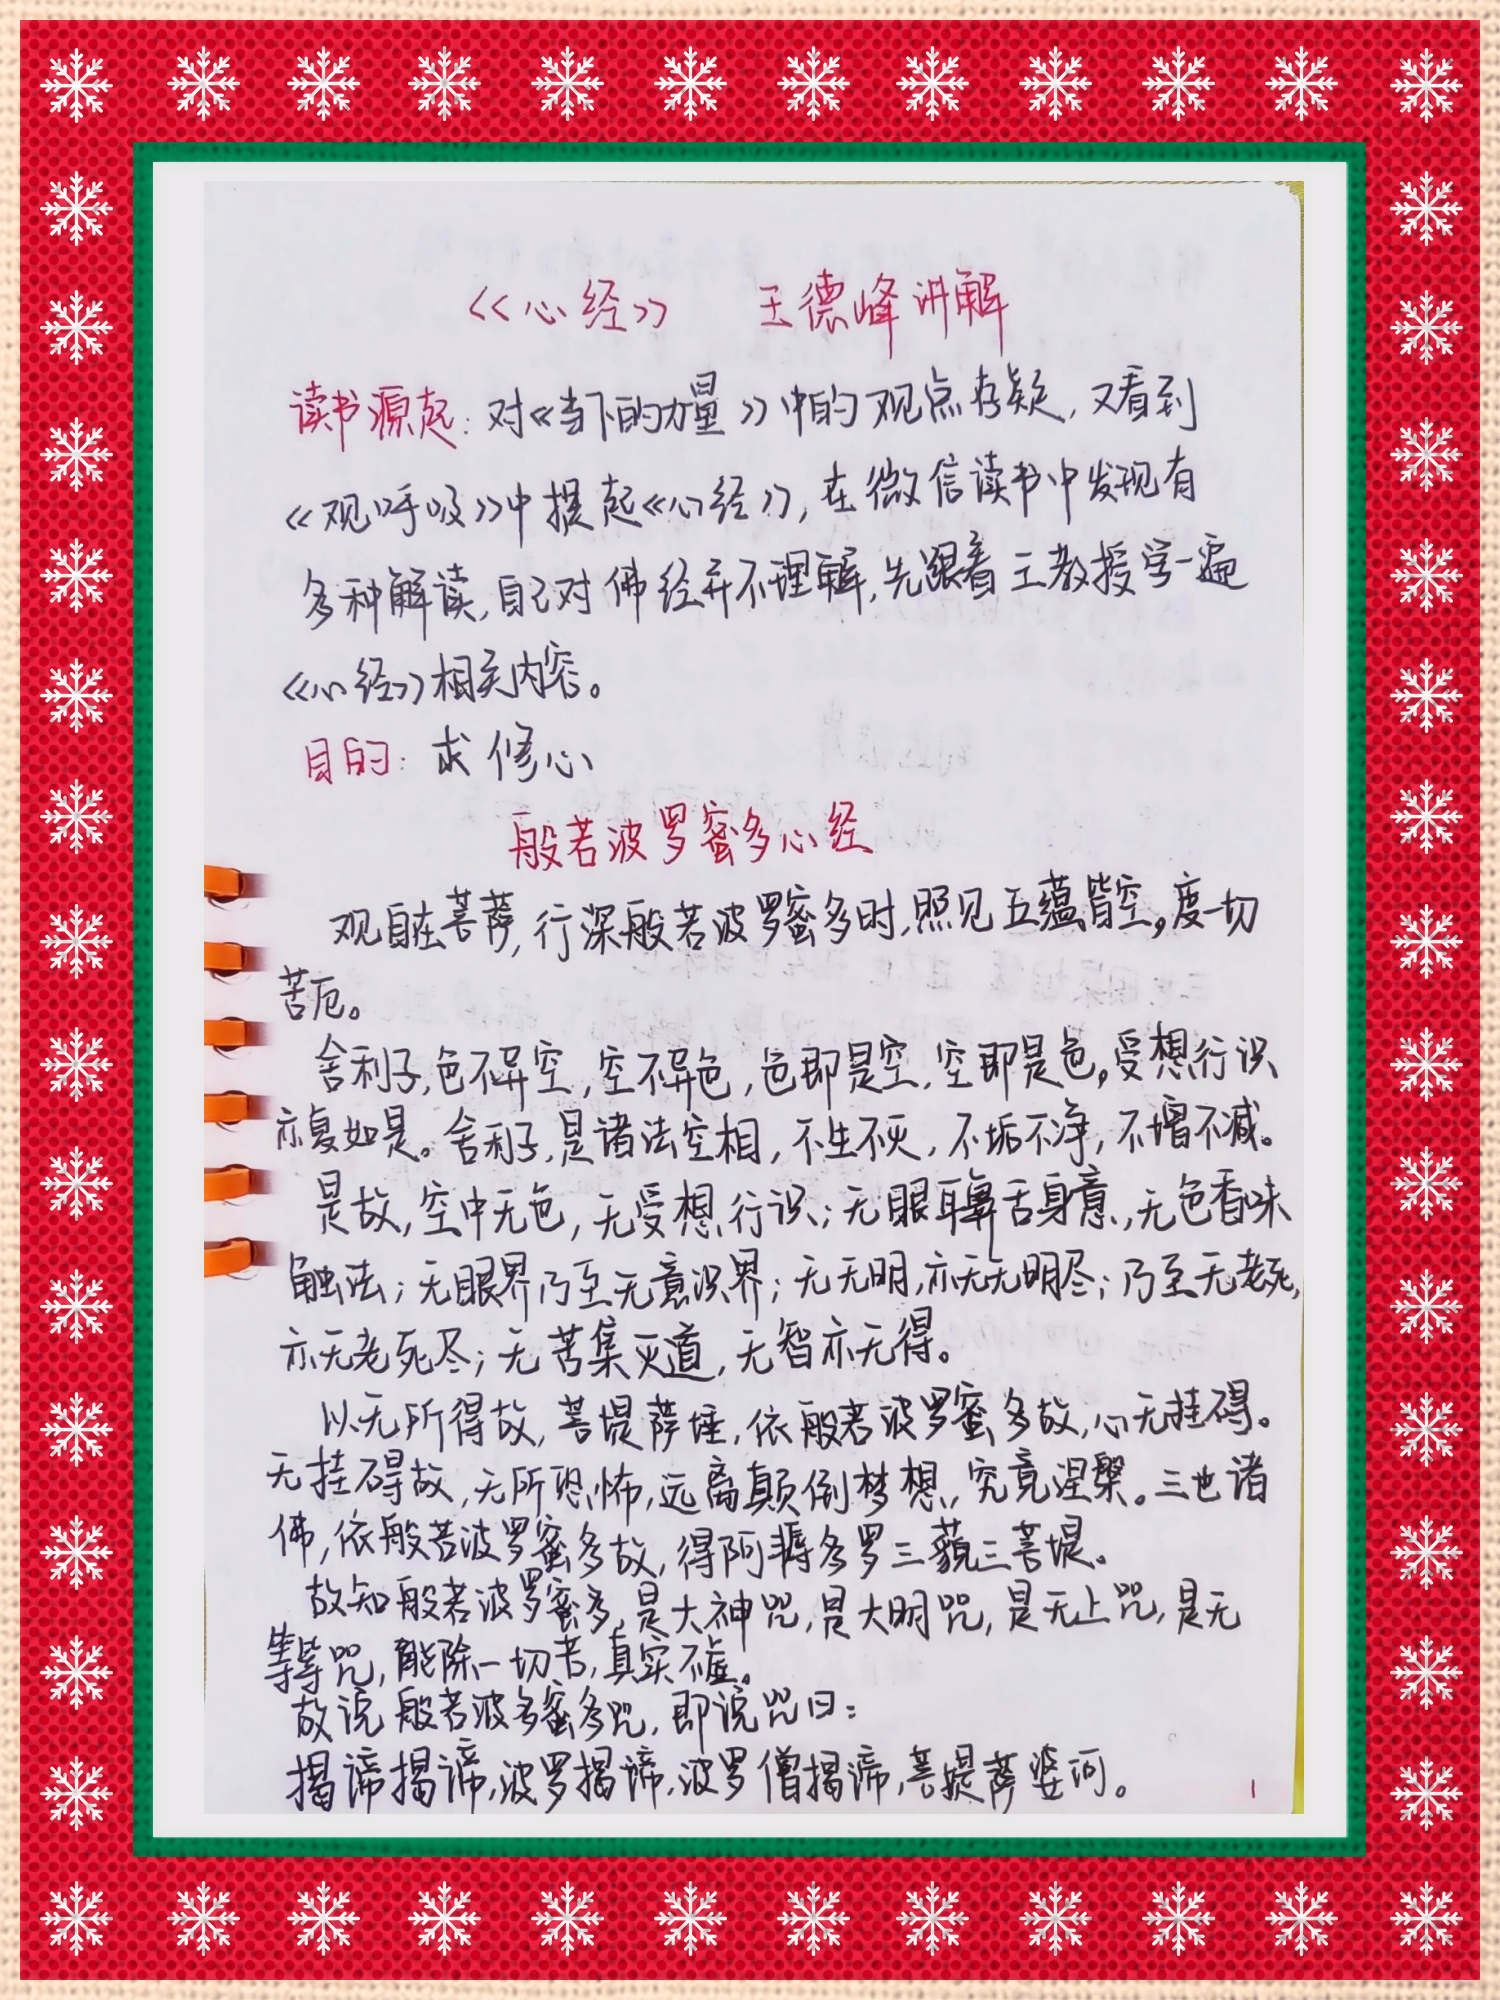 《心经》 王德峰讲解
读书源起：对《当下的力量》中的观点存疑，又看到
《观呼吸》中提起《心经》，在微信读书中发现有
多种解读，自己对佛经并不理解，先跟着王教授学一遍
《心经》相关内容。
目的：求修心
般若波罗蜜多心经
观自在菩萨，行深般若波罗蜜多时，照见五蕴皆空，度一切
苦厄。
舍利子，色不异空，空不异色，色即是空，空即是色，受想行识
亦复如是。舍利子，是诸法空相，不生不灭，不垢不净，不增不减。
是故，空中无色，无受想行识；无眼耳鼻舌身意，无色香味
触法；无眼界乃至无意识界；无无明，亦无无明尽；乃至无老死，
亦无老死尽；无苦集灭道，无智亦无得。
以无所得故，菩提萨埵，依般若波罗蜜多故，心无挂碍。
无挂碍故，无所恐怖，远离颠倒梦想，究竟涅槃。三世诸
佛，依般若波罗蜜多故，得阿耨多罗三藐三菩提。
故知般若波罗蜜多，是大神咒，是大明咒，是无上咒，是无
等等咒，能除一切苦，真实不虚。
故说般若波多蜜多咒，即说咒曰：
揭谛揭谛，波罗揭谛，波罗僧揭谛，菩提萨婆诃。
1